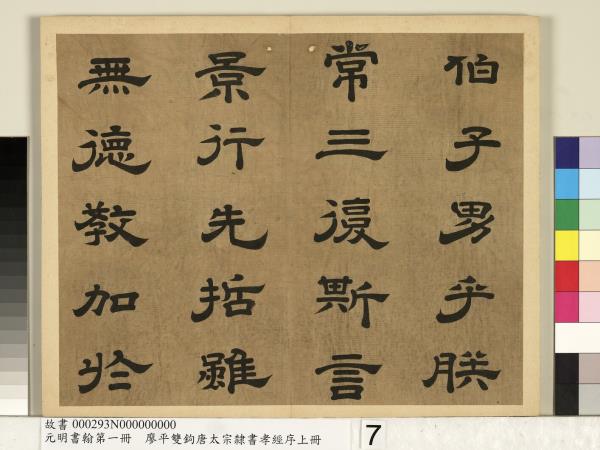 伯子男乎朕
常三復斯言
景行先哲雖
無德教加於
故書 000293N000000000
元明書翰第一冊 廖平雙鉤唐太宗隸書孝經序上冊
7